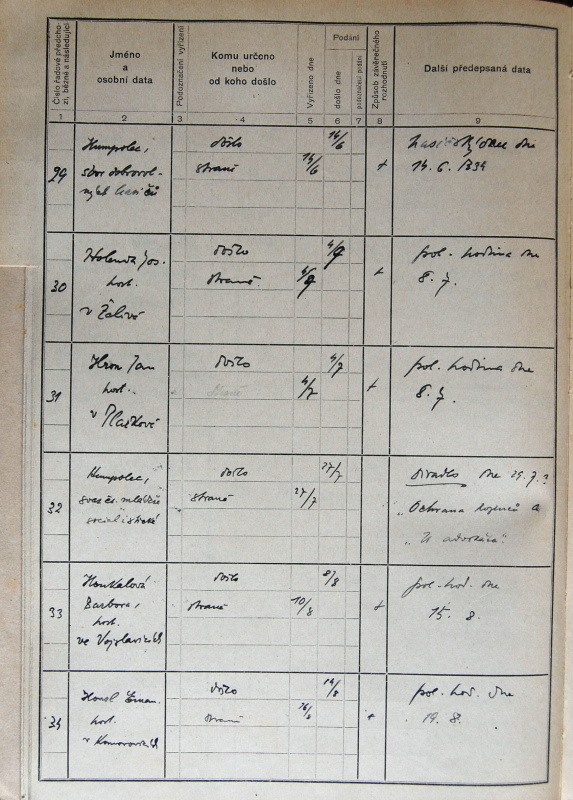 Číslo řadové předcho-
zí, běžné a následující
Jméno
a
osobní data
Podoznačení vyřízení
Komu určeno
nebo
od koho došlo
Vyřízeno dne
Podání
došlo dne
podoznačení podání
Způsob závěrečného
rozhodnutí
Další předepsaná data
1 2 3 4 5 6 7 8 9
29
Humpolec,
sbor dobrovol-
ných hasičů
došlo 14/6
straně 14/6 +
dne
14. 6. 1934
30
Holenda Jos.
host.
v Želivě
došlo 4/7
straně 4/7 +
pol. hodina dne
8. 7.
31
Hron Jan
host.
v Plačkově
došlo 4/7
straně 4/7 +
pol. hodina dne
8. 7.
32
Humpolec,
svaz čs. mládeže
socialistické
došlo 27/7
straně 27/7
divadlo dne 29. 7.
„Ochrana kojenců a
„U advokáta"
33
Houkalová
Barbora,
host.
ve Vojslavicích
došlo 8/8
straně 10/8 +
pol. hod. dne
15. 8.
34
Honsl Eman.
host.
v Komorovicích
došlo 14/8
straně 16/8 +
pol. hod. dne
19. 8.